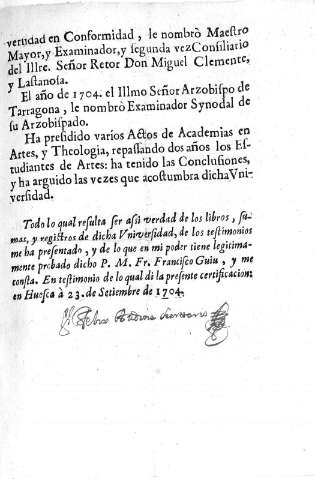 versidad en Conformidad, le nombrò Maestro
Mayor, y Examinador, y segunda vez Consiliario
del Illre. Señor Retor Don Miguel Clemente,
y Lastanosa.
El año de 1704. el Illmo Señor Arzobispo de
Tarragona, le nombrò Examinador Synodal de
su Arzobispado.
Ha presidido varios Actos de Academias en
Artes, y Theologia, repassando dos años los Es-
tudiantes de Artes: ha tenido las Conclusiones,
y ha arguido las vezes que acostumbra dicha Vni-
versidad.
Todo lo qual resulta ser assi verdad de los libros, su-
mas, y registros de dicha Vniversidad, de los testimonios
me ha presentado, y de lo que en mi poder tiene legitima-
mente probado dicho P. M. Fr. Francisco Guiu, y me
consta. En testimonio de lo qual di la presente certificacion
en Huesca à 23. de Setiembre de 1704.